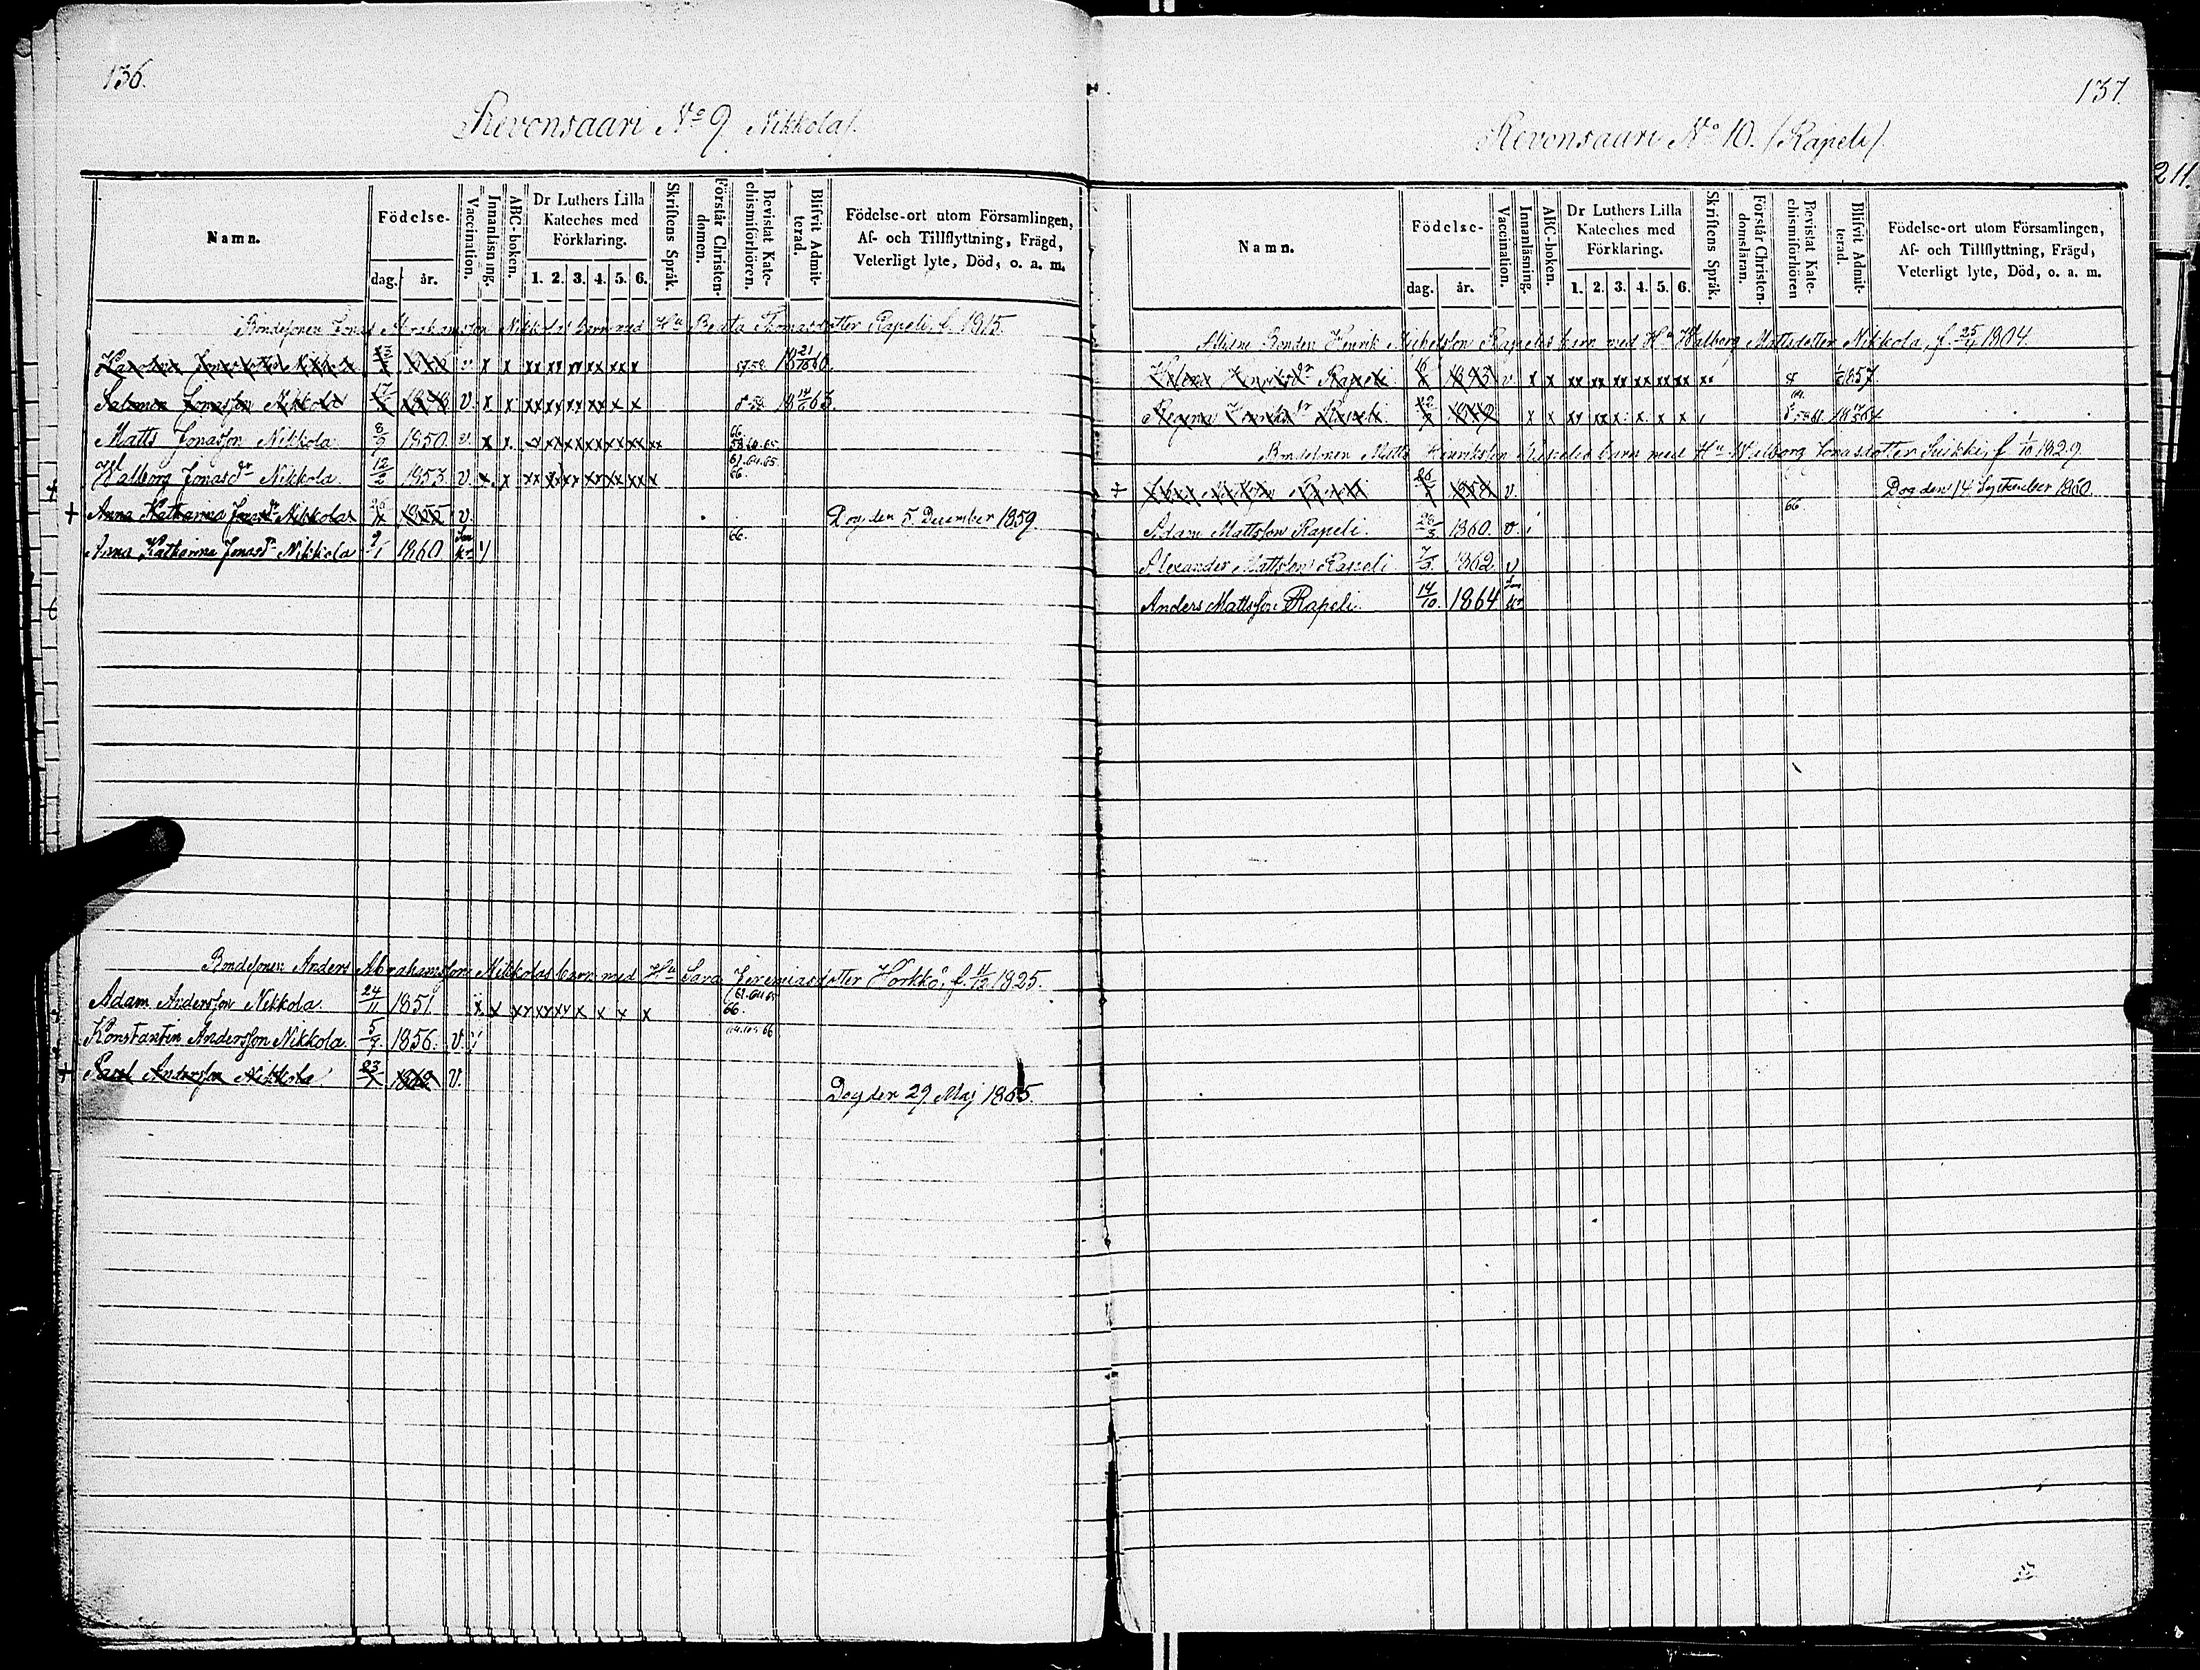 136.
Revonsaari No 9 Nikkola/.
Namn.
Födelse-
dag. år.
Vaccination.
Innanläsning.
ABC-boken.
Dr Luthers Lilla
Kateches med
Förklaring.
1. 2. 3. 4. 5. 6.
Skriftens Språk.
Förstår Christen-
domen.
Bevistat Kate-
chismiförhören.
Blifvit Admit-
terad.
Födelse-ort utom Församlingen,
Af- och Tillflyttning, Frägd,
Veterligt lyte, Död, o. a. m.
Bondesonen Jonas Abrahamsson Nikkolas barn med Hu Beata Thomasdotter Rapeli, f. 1815.
Karolina Jonasdotter Nikkola v x x xx xx xx xx x x 57.58 18 21/10 60.
Salomon Jonasson Nikkola 17/ v. x x xx xx xx x x x 18 63.
Matts Jonasson Nikkola 8/9 1850. v. x x. 66.
Walborg Jonasdr Nikkola. 12/2 1853. v. x. x 61.64.65. 66.
+ Anna Katharina Jonasdr Nikkola 1855 v Dog den 5. December 1859.
Anna Katharina Jonasdr Nikkola 9/1 1860 66.
Bondesonen Anders Abrahamsson Nikkolas barn med Hu Sara Jeremiasdotter Horkkö, f. 1825.
Adam Andersson Nikkola. 24/11 1851. x x xx xx xx x x x x 61.64.65 66.
Konstantin Andersson Nikkola. 5/9 1856. v.
+ Paul Andersson Nikkola 23/ v. Dog den 29 Maj 1865.
137.
Revonsaari No 10. /Rapeli/.
Namn.
Födelse-
dag. år.
Vaccination.
Innanläsning.
ABC-boken.
Dr Luthers Lilla
Kateches med
Förklaring.
1. 2. 3. 4. 5. 6.
Skriftens Språk.
Förstår Christen-
domsläran.
Bevistat Kate-
chismiförhören
Blifvit Admit-
terad.
Födelse-ort utom Församlingen,
Af- och Tillflyttning, Frägd,
Veterligt lyte, Död, o. a. m.
Aflidne Bonden Henrik Michelsson Rapelis barn med Hu Walborg Mattsdotter Nikkola, f. 25/4 1804.
Helena Henriksdr Rapeli v x x xx xx xx xx xx xx 1857.
Regina Henriksdr Rapeli x x
Bondesonen Matts Henriksson Rapelis barn med Hu Walborg Jonasdotter Suikki, f. 1/10 1829.
+ Rapeli 1858 v. Dog den 14 September 1860.
Adam Mattsson Rapeli. 1860. v. 66.
Alexander Mattsson Rapeli 1862. v
Anders Mattsson Rapeli. 14/10. 1864
211.